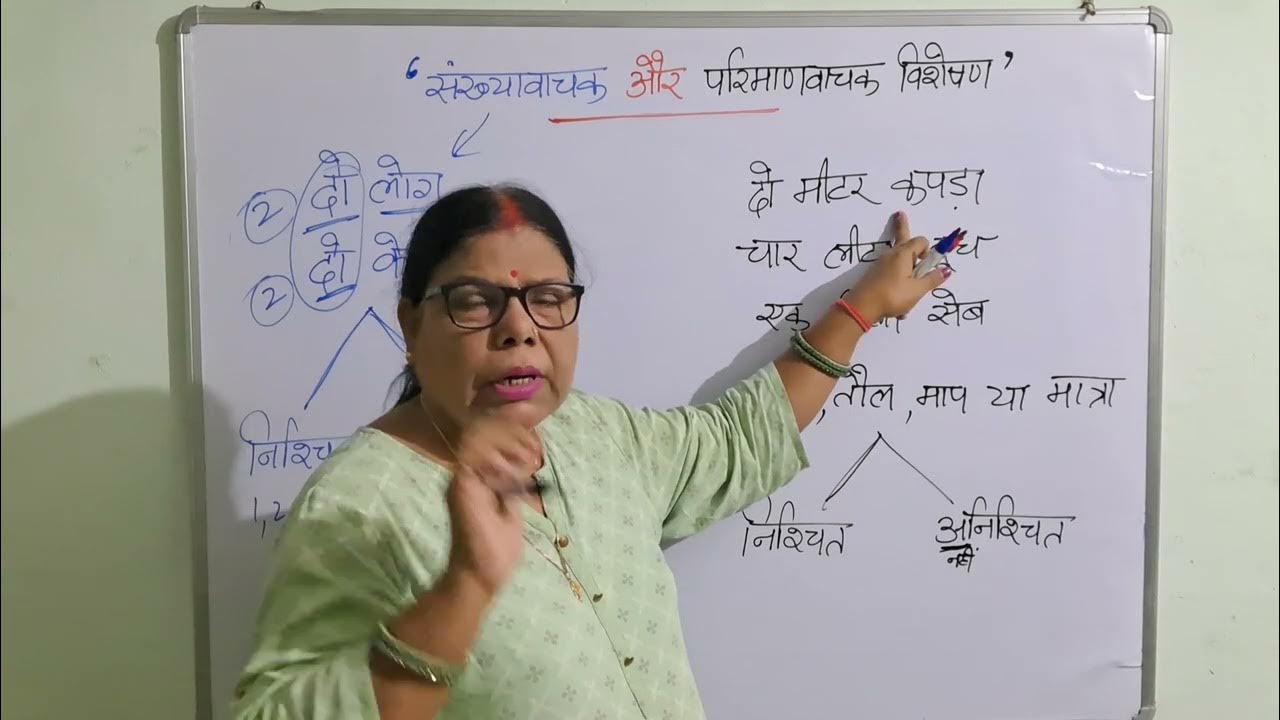 ‘संख्यावाचक और परिमाणवाचक विशेषण’
2 दो लोग
2 दो
निश्चि
1, 2
दो मीटर कपड़ा
चार लीट
एक सेब
, तौल, माप या मात्रा
निश्चित अनिश्चित
नहीं